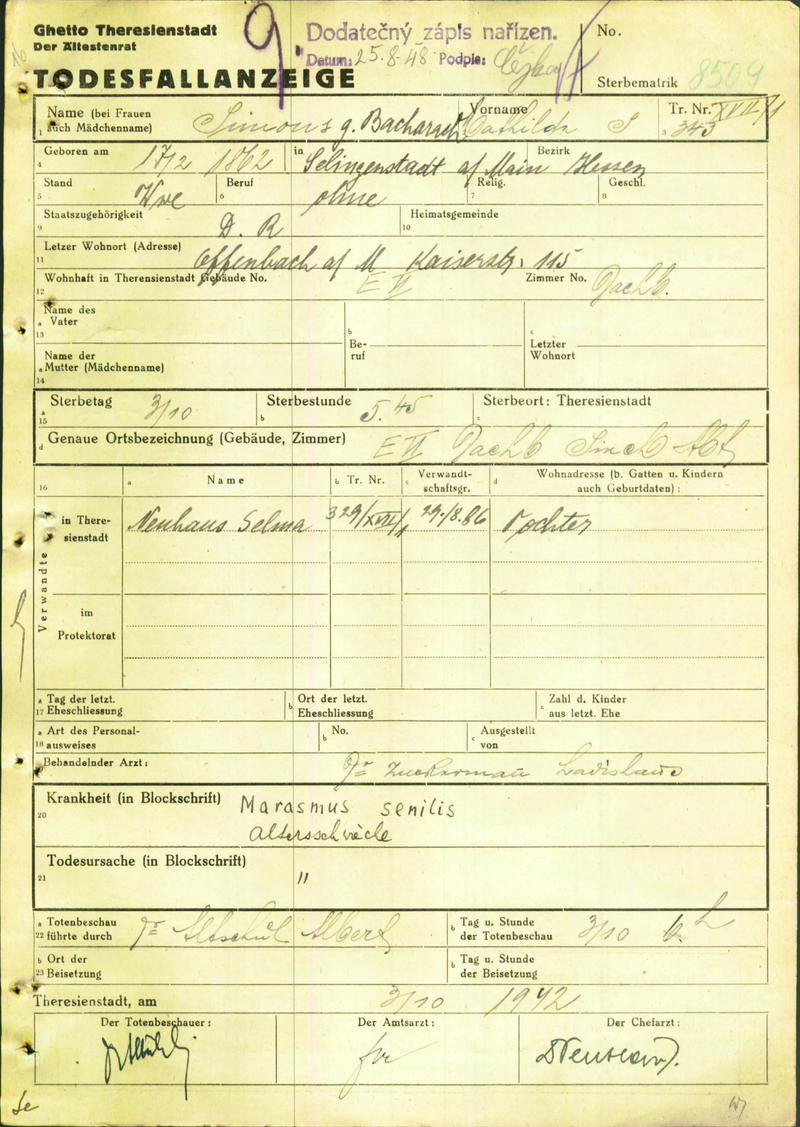 Ghetto Theresienstadt
Der Ältestenrat
TODESFALLANZEIGE
Dodatečný zápis nařízen.
Datum: 25.8.48 Podpis:
No.
Sterbematrik 8509
Name (bei Frauen auch Mädchenname) Simons g. Bacharach
Vorname Mathilde S
Tr. Nr. XVII/1
1 3 343
4 Geboren am 17/2 1862 in Selingenstadt a/ Main Bezirk Hessen
5 Stand Wwe 6 Beruf ohne 7 Relig. 8 Geschl.
9 Staatszugehörigkeit D. R 10 Heimatsgemeinde
11 Letzer Wohnort (Adresse) Offenbach a/ M Kaiserstr. 115
12 Wohnhaft in Theresienstadt Gebäude No. E VI Zimmer No. Dachb.
a 13 Name des Vater
b Beruf
c Letzter Wohnort
a 14 Name der Mutter (Mädchenname)
a 15 Sterbetag 3/10 b Sterbestunde 5.45 c Sterbeort: Theresienstadt
d Genaue Ortsbezeichnung (Gebäude, Zimmer) E VI Dachb
16 a Name b Tr. Nr. c Verwandtschaftsgr. d Wohnadresse (b. Gatten u. Kindern auch Geburtdaten):
Verwandte
in Theresienstadt Neuhaus Selma 329/XVII/1 29./8.86 Tochter
im Protektorat
a 17 Tag der letzt. Eheschliessung b Ort der letzt. Eheschliessung c Zahl d. Kinder aus letzt. Ehe
a 18 Art des Personalausweises b No. c Ausgestellt von
19 Behandelnder Arzt: Dr Zuckermann Ladislaus
20 Krankheit (in Blockschrift) Marasmus senilis
Altersschwäche
21 Todesursache (in Blockschrift) "
a 22 Totenbeschau führte durch Dr Altschul Albert b Tag u. Stunde der Totenbeschau 3/10 6 h
b 23 Ort der Beisetzung b Tag u. Stunde der Beisetzung
Theresienstadt, am 3/10 1942
Der Totenbeschauer: Der Amtsarzt: Der Chefarzt: